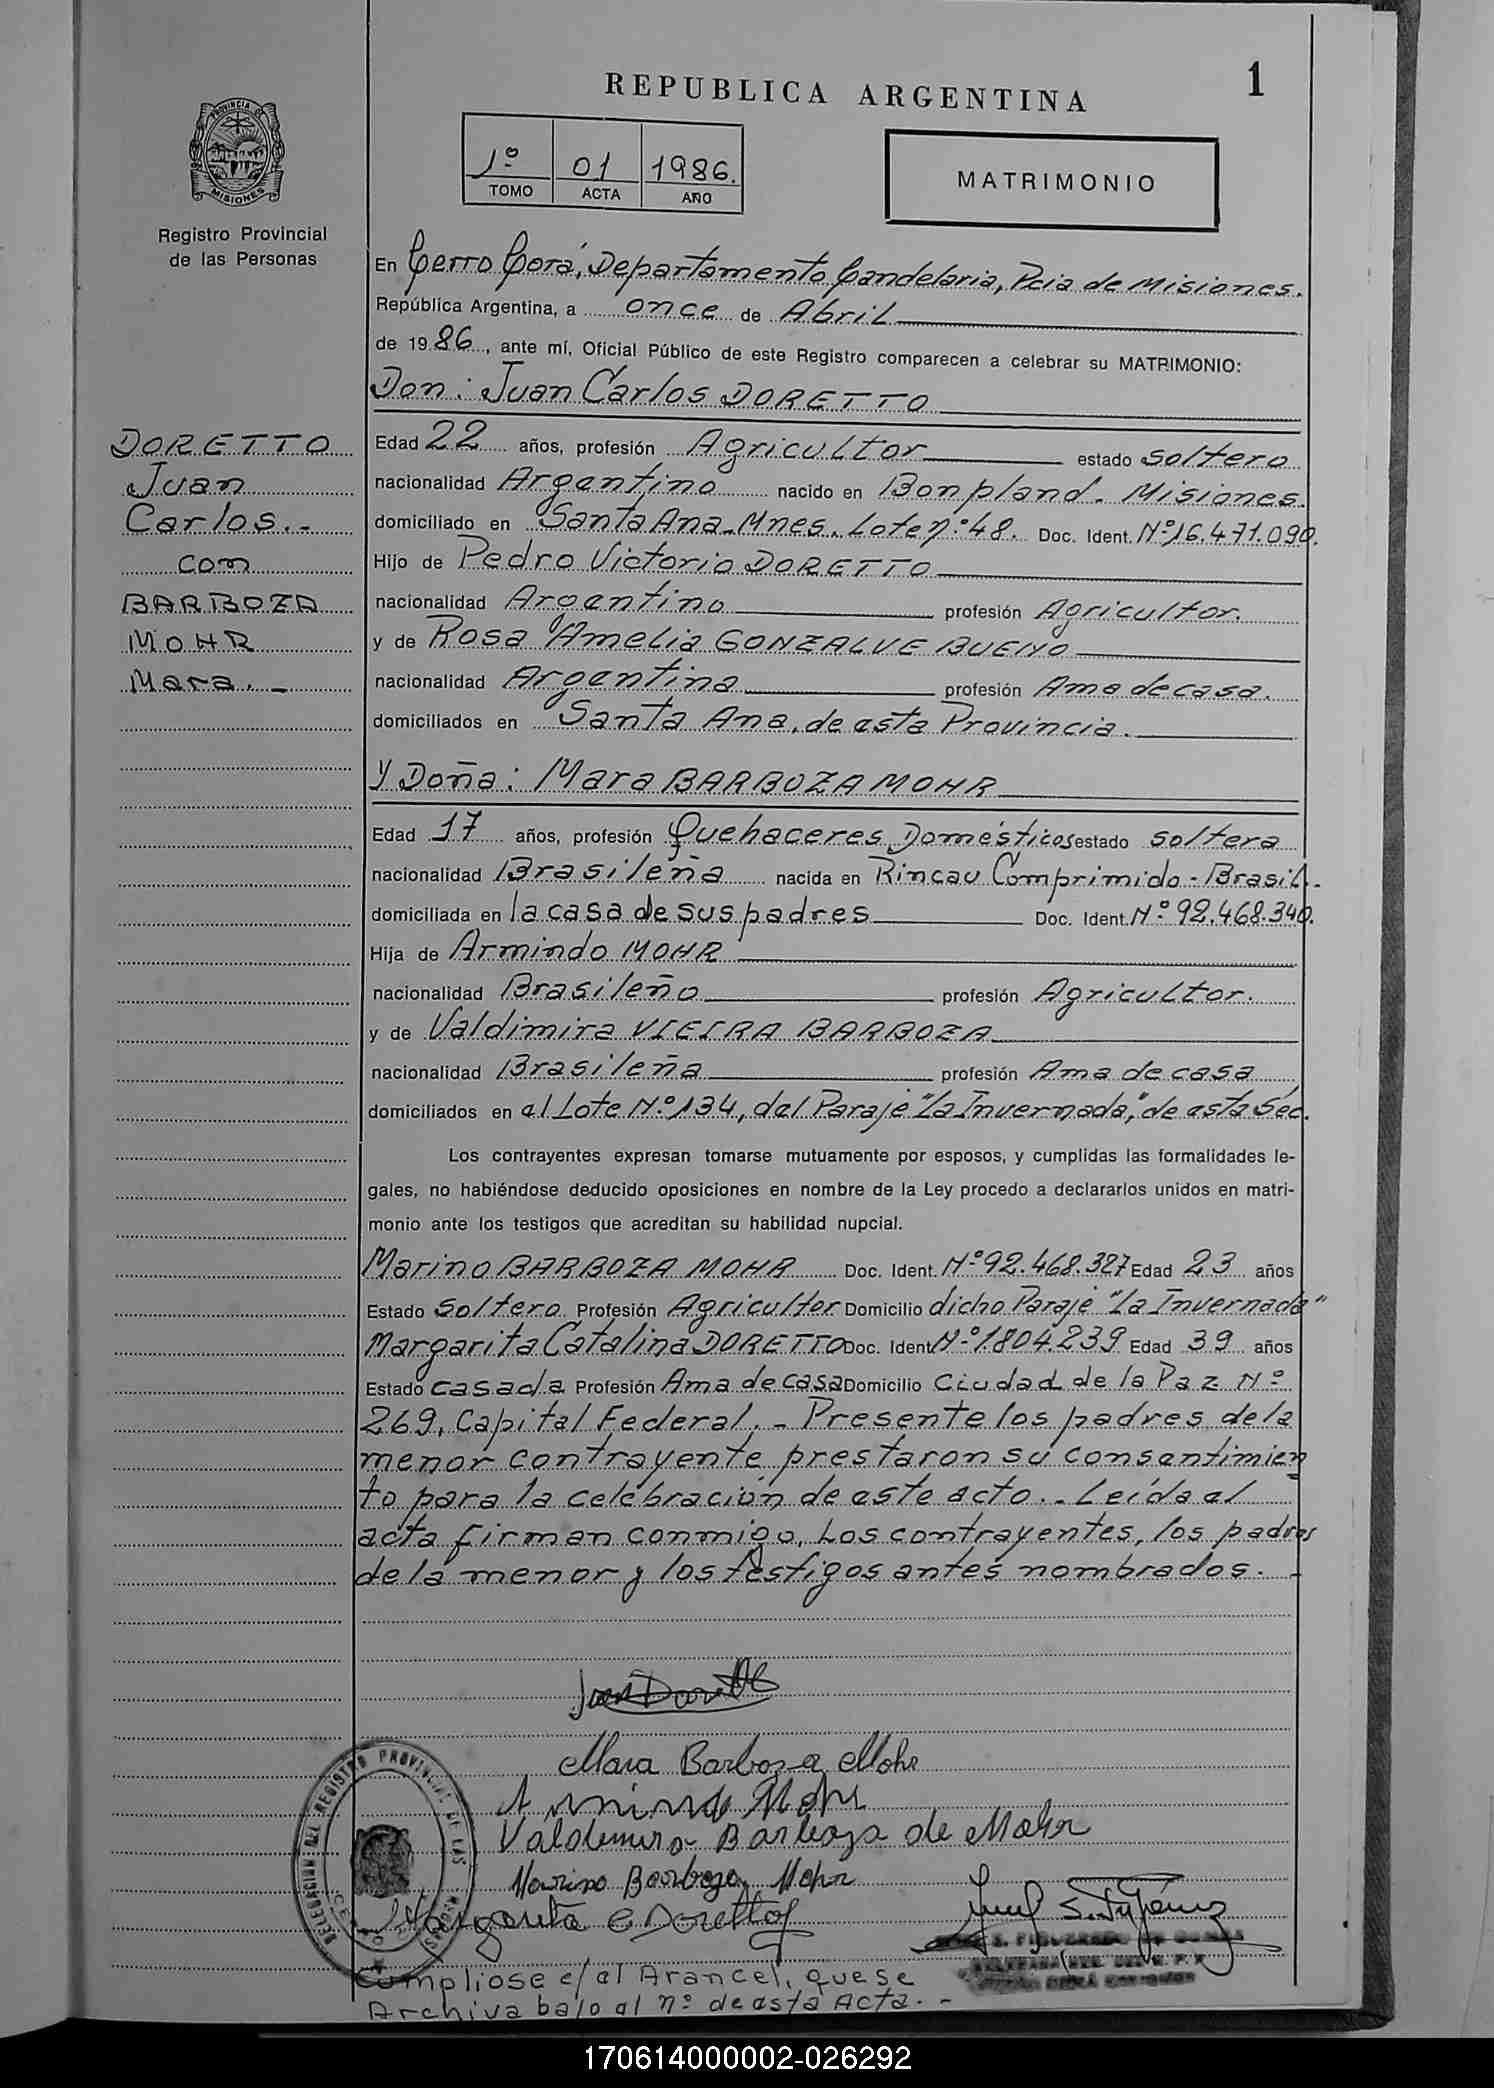 REPUBLICA ARGENTINA
1
PROVINCIA DE
MISIONES
Registro Provincial
de las Personas
1º 01 1986.
TOMO ACTA AÑO
MATRIMONIO
En Cerro Corá, Departamento Candelaria, Pcia de Misiones.
República Argentina, a once de Abril
de 1986, ante mí, Oficial Público de este Registro comparecen a celebrar su MATRIMONIO:
Don: Juan Carlos DORETTO
DORETTO
Juan
Carlos.-
con
BARBOZA
MOHR
Mara.-
Edad 22 años, profesión Agricultor estado soltero
nacionalidad Argentino nacido en Bonpland. Misiones.
domiciliado en Santa Ana-Mnes. Lote nº 48. Doc. Ident. Nº 16.471.090.
Hijo de Pedro Victorio DORETTO
nacionalidad Argentino profesión Agricultor.
y de Rosa Amelia GONZALVE BUENO
nacionalidad Argentina profesión Ama de casa.
domiciliados en Santa Ana, de esta Provincia.
Y Doña: Mara BARBOZA MOHR
Edad 17 años, profesión Quehaceres Domésticos estado soltera
nacionalidad Brasileña nacida en Rincau Comprimido-Brasil.
domiciliada en la casa de sus padres Doc. Ident. Nº 92.468.340.
Hija de Armindo MOHR
nacionalidad Brasileño profesión Agricultor.
y de Valdimira VIEIRA BARBOZA
nacionalidad Brasileña profesión Ama de casa
domiciliados en el Lote Nº 134, del Paraje "La Invernada", de esta Séc.
Los contrayentes expresan tomarse mutuamente por esposos, y cumplidas las formalidades le-
gales, no habiéndose deducido oposiciones en nombre de la Ley procedo a declararlos unidos en matri-
monio ante los testigos que acreditan su habilidad nupcial.
Marino BARBOZA MOHR Doc. Ident. Nº 92.468.327 Edad 23 años
Estado soltero Profesión Agricultor Domicilio dicho Paraje "La Invernada"
Margarita Catalina DORETTO Doc. Ident. Nº 1.804.239 Edad 39 años
Estado casada Profesión Ama de casa Domicilio Ciudad de la Paz Nº
269, Capital Federal.- Presente los padres de la
menor contrayente prestaron su consentimien
to para la celebración de este acto.- Leída el
acta firman conmigo, Los contrayentes, los padres
de la menor y los testigos antes nombrados.-
Juan Doretto
Mara Barboza Mohr
Armindo Mohr
Valdemira Barboza de Mohr
Marino Barboza Mohr
Margarita C Doretto
DELEGACION DEL REGISTRO PROVINCIAL DE LAS PERSONAS
Cumpliose c/ el Arancel, que se
Archiva bajo el nº de esta Acta.-
170614000002-026292